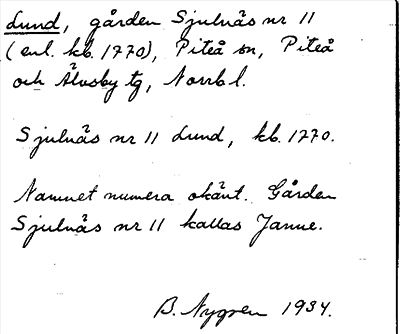 Lund, gården Sjulnäs nr 11
(enl. kb. 1770), Piteå sn, Piteå
och Älvsby tg, Norrb l.
Sjulnäs nr 11 Lund, kb. 1770.
Namnet numera okänt. Gården
Sjulnäs nr 11 kallas Janne.
B. Nygren 1934.